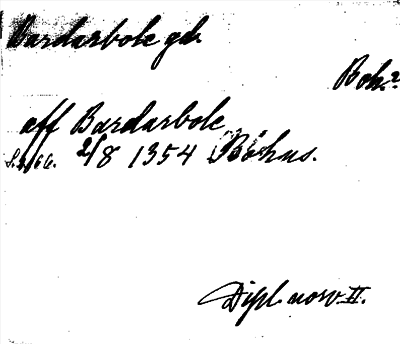 Bardarbok gd.
Boh.?
aff Bardarbok
S. 266. 2/8 1354 Bohus.
Dipl. norv. II.